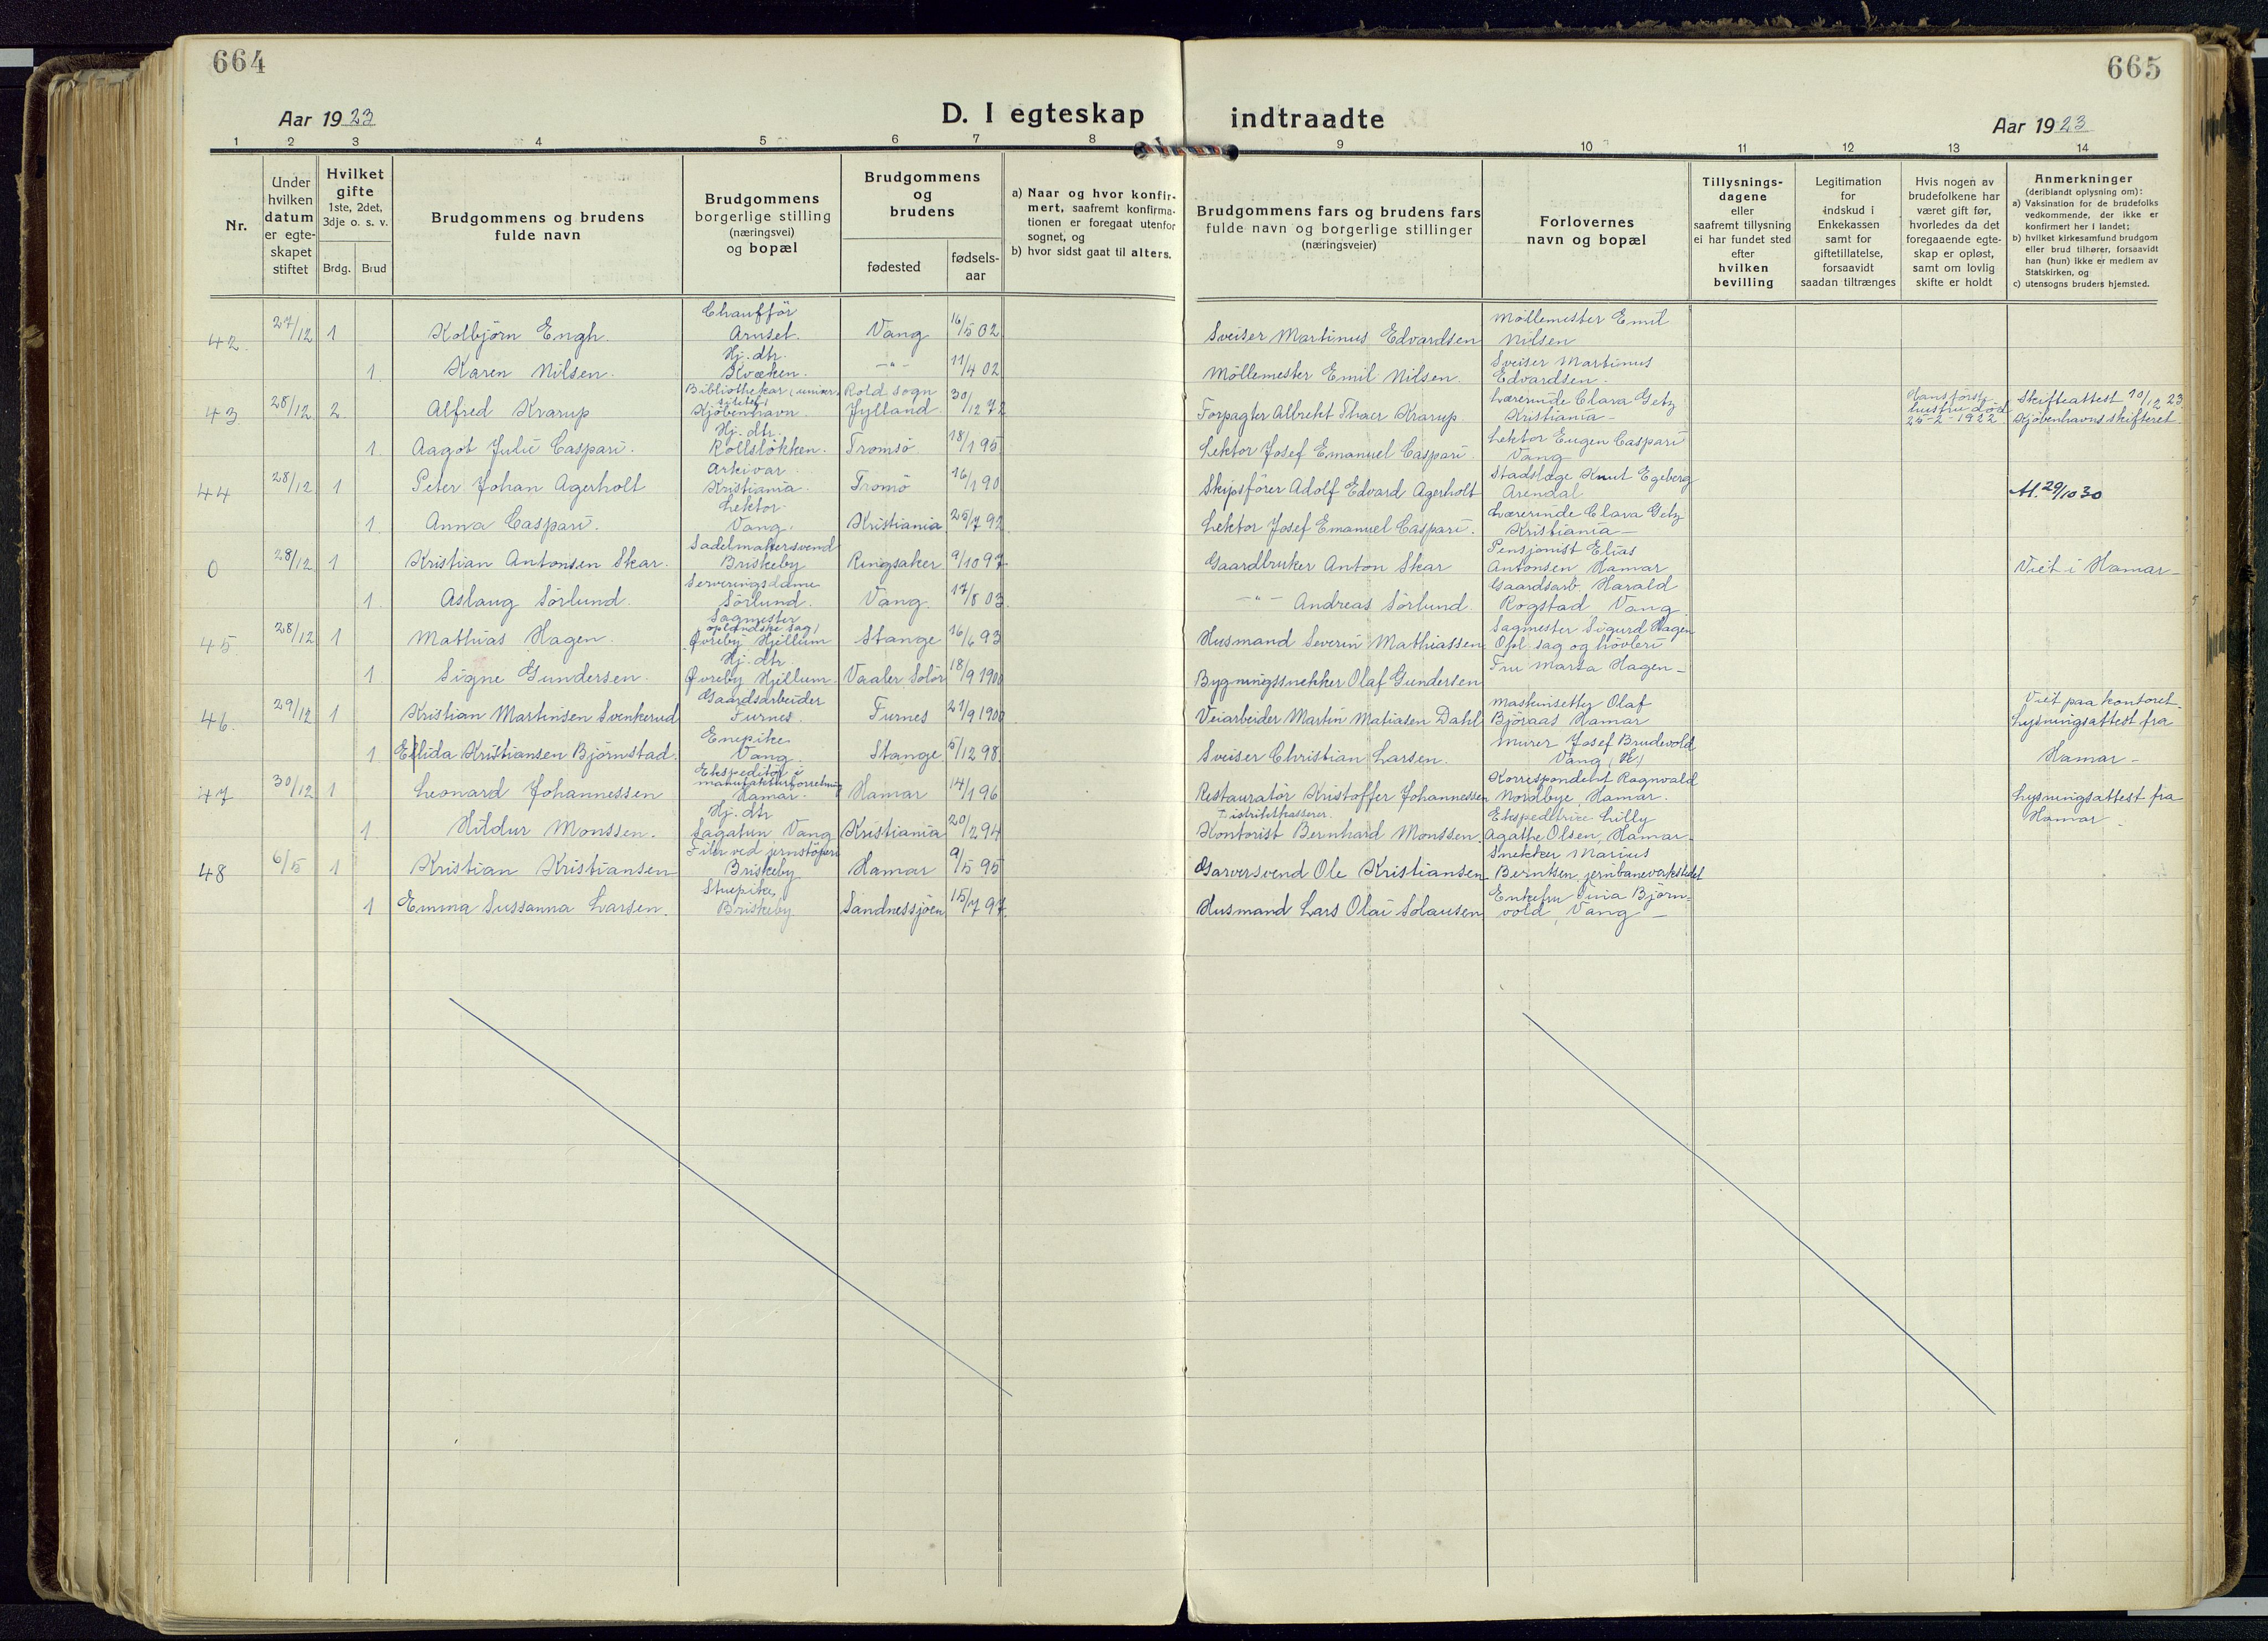 664
665
Aar 1923
D. I egteskap
indtraadte
Aar 1923
1 2 3 4 5 6 7 8 9 10 11 12 13 14
Nr.
Under
hvilken
datum
er egte-
skapet
stiftet
Hvilket
gifte
1ste, 2det,
3dje o. s. v.
Brdg. Brud
Brudgommens og brudens
fulde navn
Brudgommens
borgerlige stilling
(næringsvei)
og bopæl
Brudgommens
og
brudens
fødested
fødsels-
aar
a) Naar og hvor konfir-
mert, saafremt konfirma-
tionen er foregaat utenfor
sognet, og
b) hvor sidst gaat til alters.
Brudgommens fars og brudens fars
fulde navn og borgerlige stillinger
(næringsveier)
Forlovernes
navn og bopæl
Tillysnings-
dagene
eller
saafremt tillysning
ei har fundet sted
efter
hvilken
bevilling
Legitimation
for
indskud i
Enkekassen
samt for
giftetillatelse,
forsaavidt
saadan tiltrænges
Hvis nogen av
brudefolkene har
været gift før,
hvorledes da det
foregaaende egte-
skap er opløst,
samt om lovlig
skifte er holdt
Anmerkninger
(deriblandt oplysning om):
a) Vaksination for de brudefolks
vedkommende, der ikke er
konfirmert her i landet;
b) hvilket kirkesamfund brudgom
eller brud tilhører, forsaavidt
han (hun) ikke er medlem av
Statskirken, og
c) utensogns bruders hjemsted.
42. 27/12 1 Kolbjörn Engh. Chaufför Aruset. Vang 16/5 02 Sveiser Martinus Edvardsen Möllemester Emil Nilsen
1. Karen Nilsen. Hj. dtr. Kvæken. -"- 11/4 02 Möllemester Emil Nilsen. Sveiser Martinus Edvardsen.
43. 28/12 2. Alfred Krarup Bibliothekar (universitetet) Kjöbenhavn Rold sogn Jylland 30/12 72 Forpagter Albrekt Thaer Krarup. Lærerinde Clara Getz Kristiania- Hans förste hustru död 25-2-1922 Skifteattest 10/12 23 Kjöbenhavns skifteret
1. Aagot Julie Caspari. Hj. dtr. Rollslökken. Tromsö 18/1 95 Lektor Josef Emanuel Caspari Lektor Eugen Caspari Vang
44 28/12 1 Peter Johan Agerholt Arkivar Kristiania. Tromö 16/1 90 Skipsförer Adolf Edvard Agerholt Stadslæge Knut Egeberg Arendal M. 29/10 30
1. Anna Caspari. Lektor Vang. Kristiania 25/7 92 Lektor Josef Emanuel Caspari. Lærerinde Clara Getz Kristiania-
0 28/12 1 Kristian Antonsen Skar. Sadelmakersvend Briskeby Ringsaker 9/10 97 Gaardbruker Anton Skar Pensjonist Elias Antonsen Hamar Viet i Hamar-
1. Aslaug Sörlund. Serveringsdame Sörlund. Vang. 17/8 03 -"- Andreas Sörlund. Gaardsarb. Harald Rogstad Vang.
45. 28/12 1 Mathias Hagen. Sagmester oplandske sag, Øvreby Hjellum Stange 16/6 93 Husmand Severin Mathiassen Sagmester Sigurd Hagen Opl. sag og hövleri
1. Signe Gundersen. Hj. dtr. Øvreby Hjellum. Vaaler Solör 18/9 1900 Bygningssnekker Olaf Gundersen Fru Marta Hagen-
46. 29/12 1 Kristian Martinsen Svenkerud Gaardsarbeider Furnes. Furnes 21/9 1900 Veiarbeider Martin Matiasen Dahl Maskinsetter Olaf Björaas Hamar Viet paa kontoret. Lysningsattest fra
1 Ellida Kristiansen Björnstad. Enepike Vang. Stange 5/12 98 Sveiser Christian Larsen. Murer Josef Brudevold Vang Hamar-
47 30/12 1 Leonard Johannessen Ekspeditör i manufakturforretning Hamar. Hamar 14/1 96 Restauratör Kristoffer Johannessen Korrespondent Ragnvald Nordbye, Hamar. Lysningsattest fra
1. Hildur Monssen. Hj. dtr Sagatun Vang Kristiania 20/2 94 Distriktkasserer Kontorist Bernhard Monssen. Ekspeditrice Lilly Agathe Olsen, Hamar- Hamar
48 6/5 1 Kristian Kristiansen Filer ved jernstöperi Briskeby Hamar 9/5 95 Garversvend Ole Kristiansen Snekker Marius Berntsen, jernbaneverkstedet
1 Emma Sussanna Larsen. Stuepike, Briskeby Sandnessjöen 15/7 97 Husmand Lars Olai Solausen Enkefru Tina Björnvold, Vang-